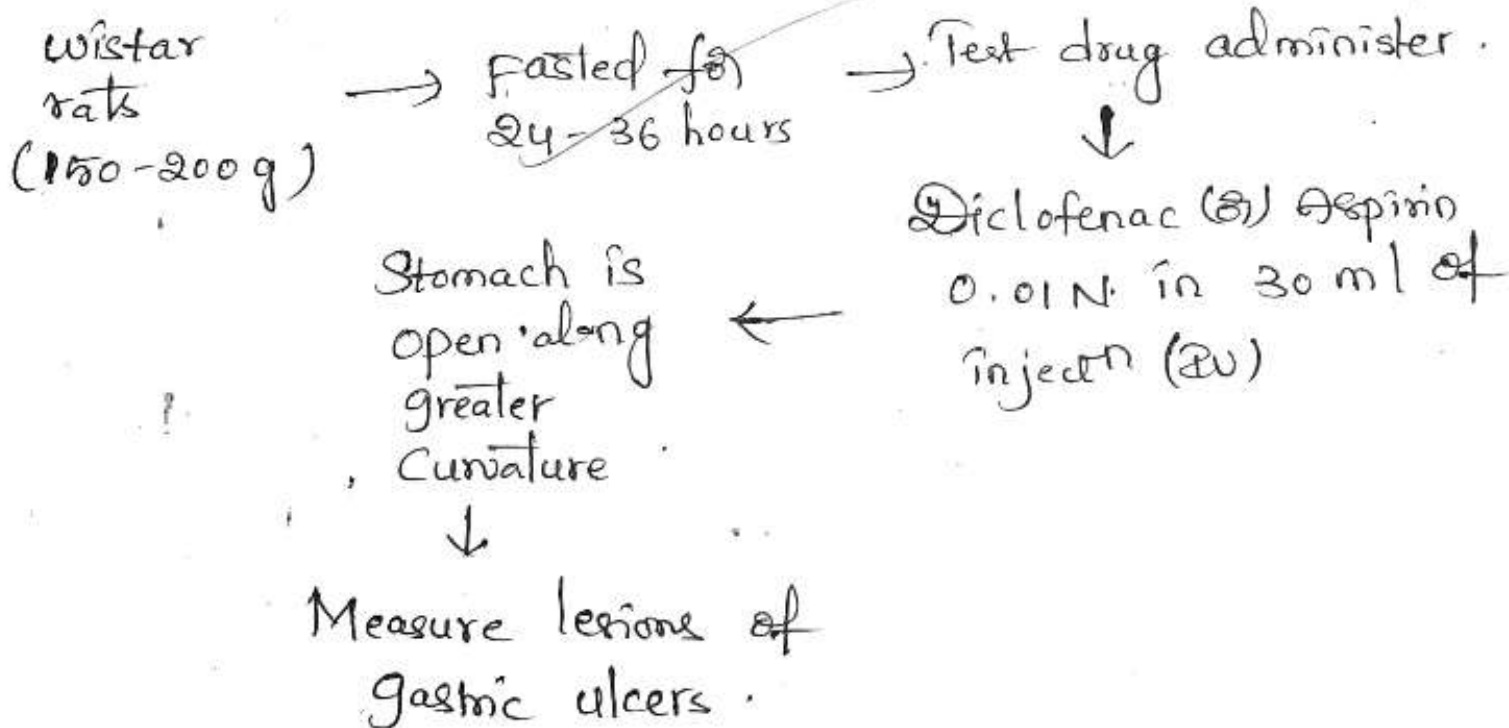 Wistar
rats
(150-200 g)
→ Fasted for
24-36 hours
→ Test drug administer.
↓
Diclofenac (or) Aspirin
0.01 N. in 30 ml of
injectn (IV)
←
Stomach is
open along
greater
Curvature
↓
Measure lesions of
gastric ulcers.